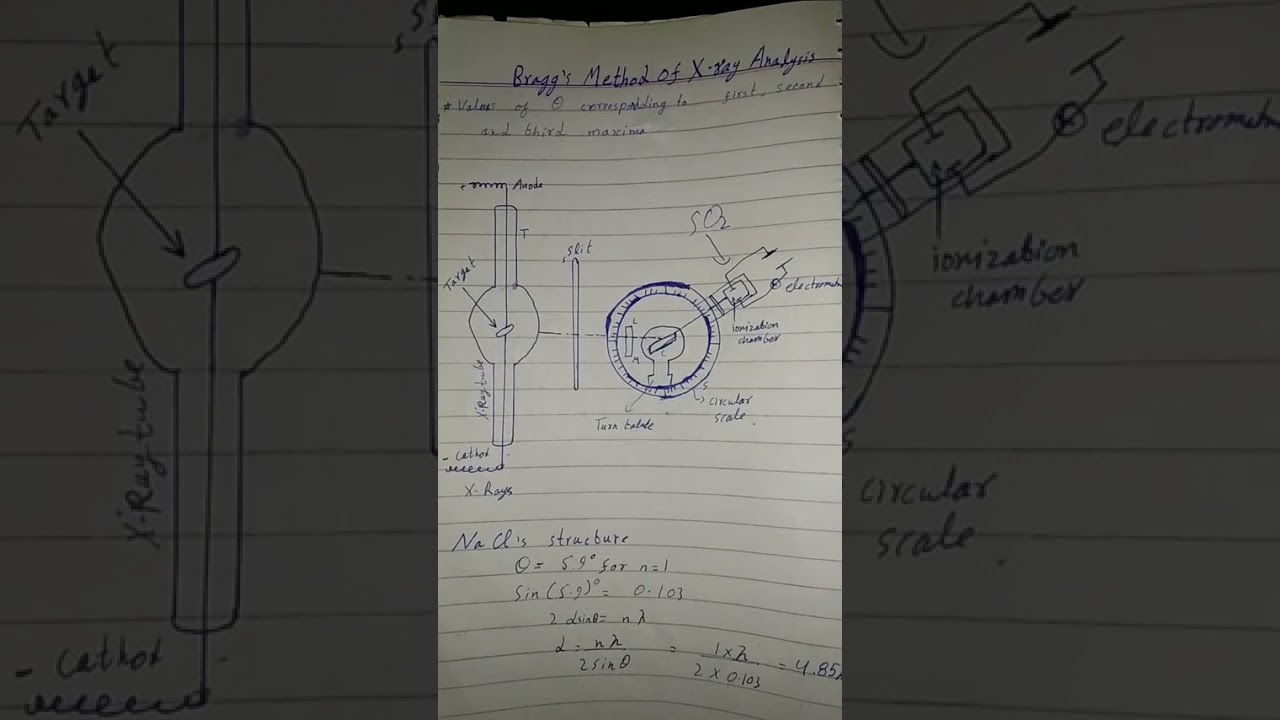 Bragg's Method of X-ray Analysis
* Values of θ corresponding to first, second
and third maxima
+ Anode
T
SO2
slit
Target
electrom
ionization
chamber
L
C
M
S
X-Ray tube
circular
scale.
Turn table
- Cathot
X-Rays
NaCl's structure
θ = 5.9° for n=1
Sin(5.9)° = 0.103
2 dsinθ = nλ
d = nλ / 2 sinθ = 1×λ / 2 × 0.103 = 4.85λ
Target
X-Ray tube
- cathot
electrom
ionization
chamber
circular
scale.